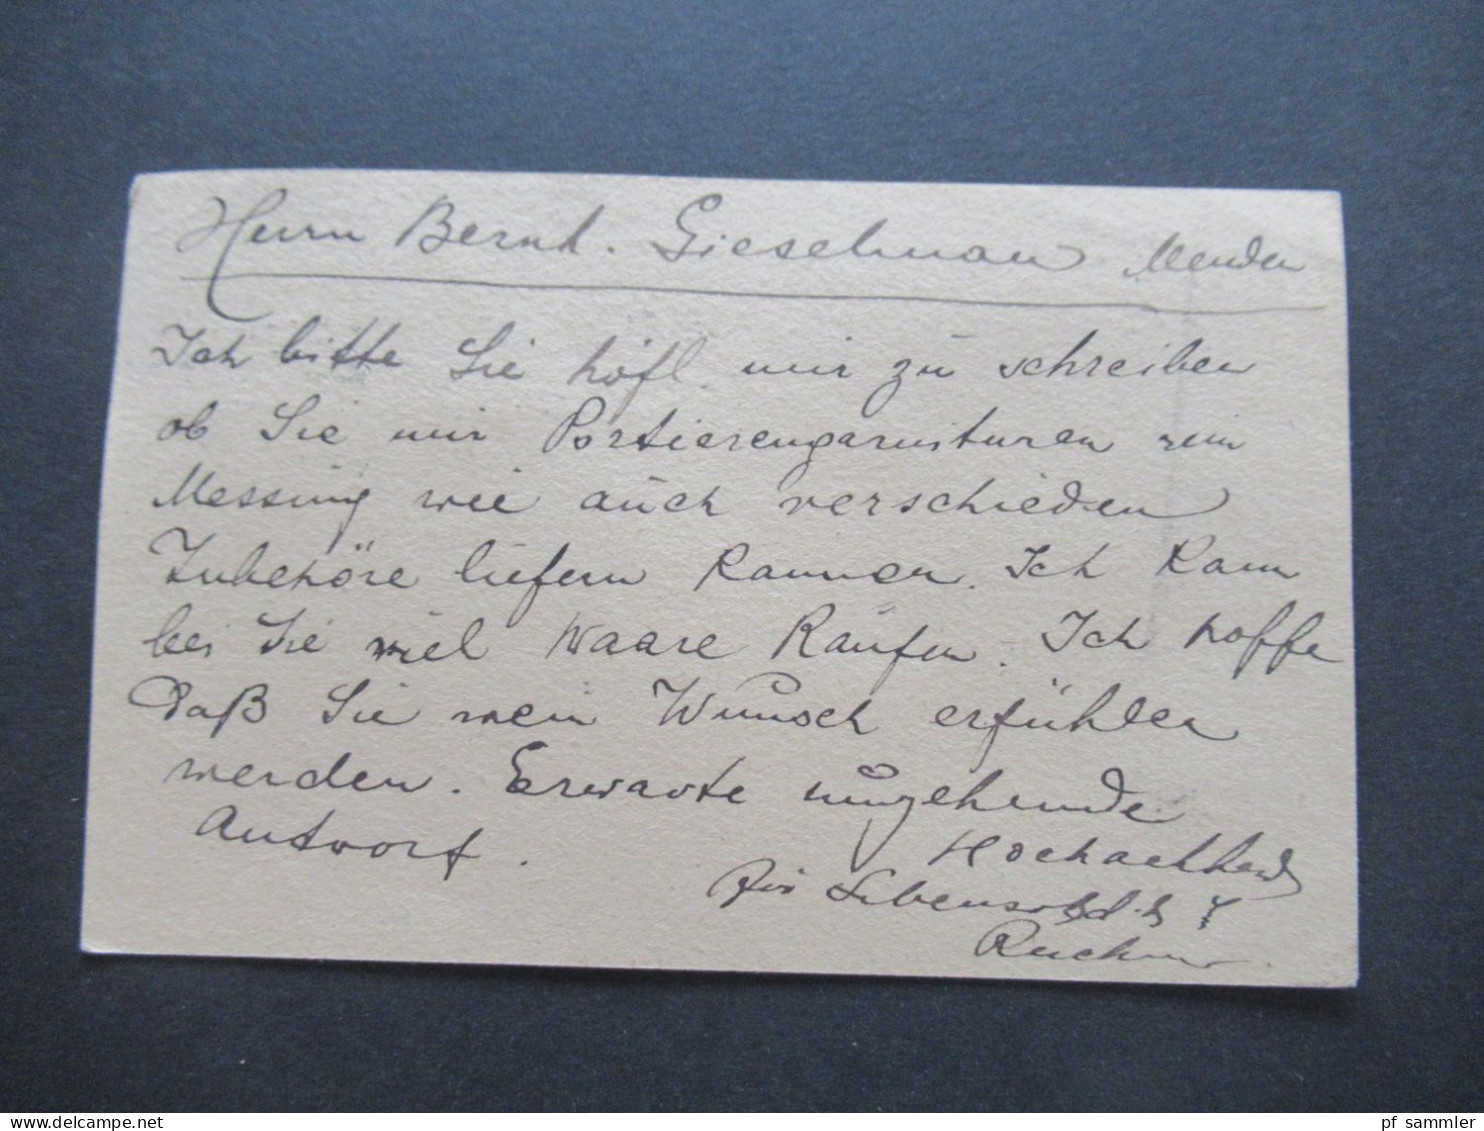 Herrn Bernh. Gieselman Menden
Ich bitte Sie höfl. mir zu schreiben
ob Sie mir Portierengarnituren rein
Messing wie auch verschieden
Zubehöre liefern kannen. Ich kann
bei Sie viel Waare kaufen. Ich hoffe
daß Sie mein Wunsch erfühlen
werden. Erwarte umgehende
Antwort.
Hochachtend
für
pf sammler